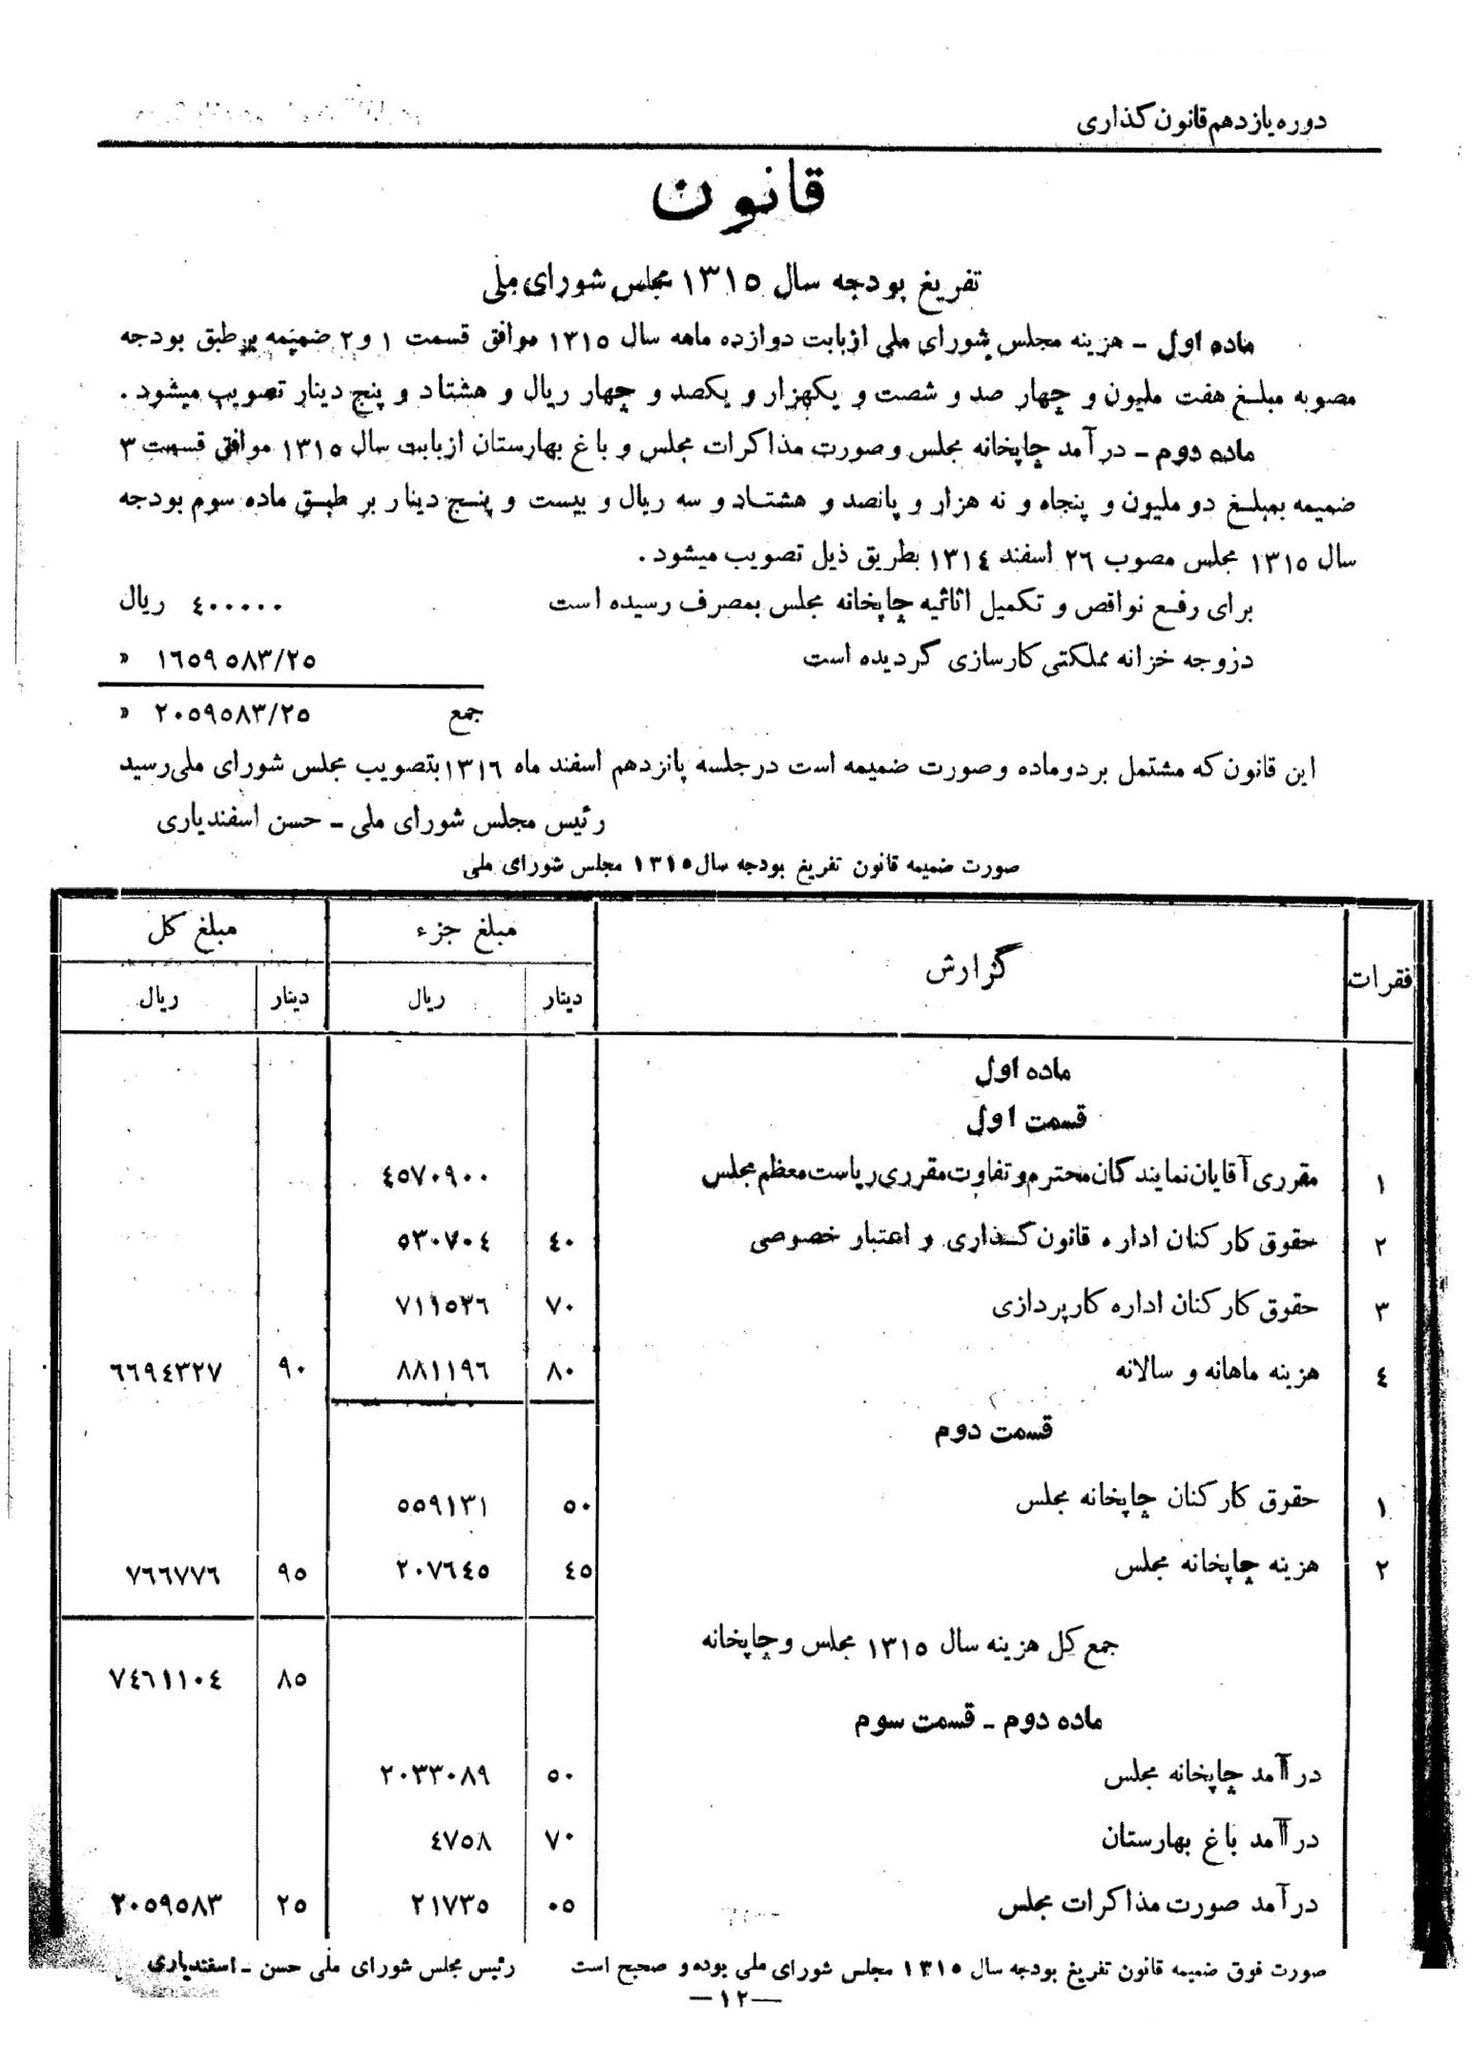 دوره یازدهم قانون گذاری
قانون
تفریغ بودجه سال ۱۳۱۵ مجلس شورای ملی
ماده اول - هزینه مجلس شورای ملی از بابت دوازده ماهه سال ۱۳۱۵ موافق قسمت ۱ و ۲ ضمیمه بر طبق بودجه
مصوبه مبلغ هفت ملیون و چهار صد و شصت و یکهزار و یکصد و چهار ریال و هشتاد و پنج دینار تصویب میشود .
ماده دوم - در آمد چاپخانه مجلس و صورت مذاکرات مجلس و باغ بهارستان از بابت سال ۱۳۱۵ موافق قسمت ۳
ضمیمه بمبلغ دو ملیون و پنجاه و نه هزار و پانصد و هشتاد و سه ریال و بیست و پنج دینار بر طبق ماده سوم بودجه
سال ۱۳۱۵ مجلس مصوب ۲۶ اسفند ۱۳۱٤ بطریق ذیل تصویب میشود .
برای رفع نواقص و تکمیل اثاثیه چاپخانه مجلس بمصرف رسیده است ٤۰۰۰۰۰ ریال
دروجه خزانه مملکتی کارسازی گردیده است ۱۶۵۹۵۸۳/۲۵ »
جمع ۲۰۵۹۵۸۳/۲۵ »
این قانون که مشتمل بر دو ماده و صورت ضمیمه است در جلسه پانزدهم اسفند ماه ۱۳۱۶ بتصویب مجلس شورای ملی رسید
رئیس مجلس شورای ملی - حسن اسفندیاری
صورت ضمیمه قانون تفریغ بودجه سال ۱۳۱۵ مجلس شورای ملی
فقرات گزارش مبلغ جزء مبلغ کل
دینار ریال دینار ریال
ماده اول
قسمت اول
۱ مقرری آقایان نمایندگان محترم و تفاوت مقرری ریاست معظم مجلس ٤۵۷۰۹۰۰
۲ حقوق کارکنان اداره قانون گذاری و اعتبار خصوصی ٤۰ ۵۳۰۷۰٤
۳ حقوق کارکنان اداره کارپردازی ۷۰ ۷۱۱۵۲۶
٤ هزینه ماهانه و سالانه ۸۰ ۸۸۱۱۹۶ ۹۰ ۶۶۹٤۳۲۷
قسمت دوم
۱ حقوق کارکنان چاپخانه مجلس ۵۰ ۵۵۹۱۳۱
۲ هزینه چاپخانه مجلس ٤۵ ۲۰۷۶٤۵ ۹۵ ۷۶۶۷۷۶
جمع کل هزینه سال ۱۳۱۵ مجلس و چاپخانه ۸۵ ۷٤۶۱۱۰٤
ماده دوم - قسمت سوم
درآمد چاپخانه مجلس ۵۰ ۲۰۳۳۰۸۹
درآمد باغ بهارستان ۷۰ ٤۷۵۸
درآمد صورت مذاکرات مجلس ۰۵ ۲۱۷۳۵ ۲۵ ۲۰۵۹۵۸۳
صورت فوق ضمیمه قانون تفریغ بودجه سال ۱۳۱۵ مجلس شورای ملی بوده و صحیح است رئیس مجلس شورای ملی حسن - اسفندیاری
—۱۲—